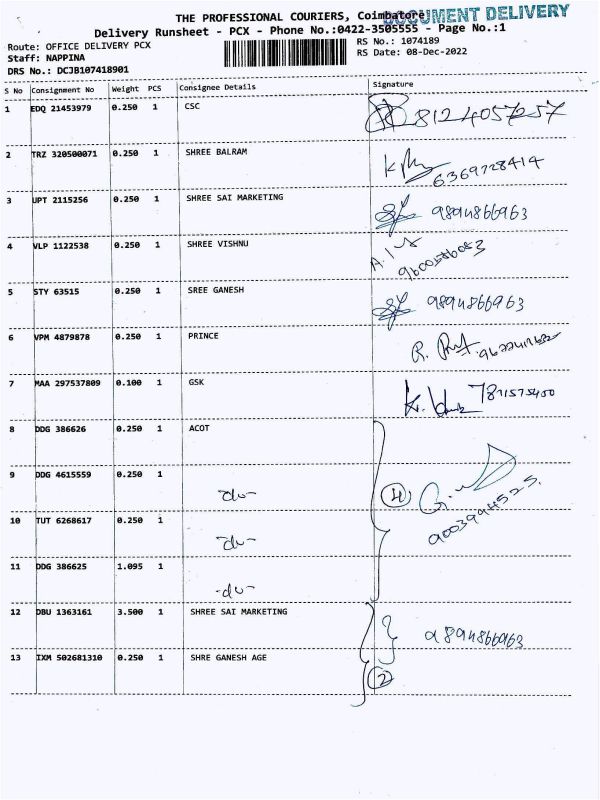 THE PROFESSIONAL COURIERS, Coimbatore
DOCUMENT DELIVERY
Delivery Runsheet - PCX - Phone No.:0422-3505555 - Page No.:1
Route: OFFICE DELIVERY PCX
RS No.: 1074189
Staff: NAPPINA
RS Date: 08-Dec-2022
DRS No.: DCJB107418901
S No Consignment No Weight PCS Consignee Details Signature
1 EDQ 21453979 0.250 1 CSC 8124057257
2 TRZ 320500071 0.250 1 SHREE BALRAM 6369728414
3 UPT 2115256 0.250 1 SHREE SAI MARKETING 9894866963
4 VLP 1122538 0.250 1 SHREE VISHNU
5 STY 63515 0.250 1 SREE GANESH 9894866963
6 VPM 4879878 0.250 1 PRINCE
7 MAA 297537809 0.100 1 GSK 7871575400
8 DDG 386626 0.250 1 ACOT
9 DDG 4615559 0.250 1
-du- 4 9003944525.
10 TUT 6268617 0.250 1
-du-
11 DDG 386625 1.095 1
-du-
12 DBU 1363161 3.500 1 SHREE SAI MARKETING 9894866963
13 IXM 502681310 0.250 1 SHRE GANESH AGE
2